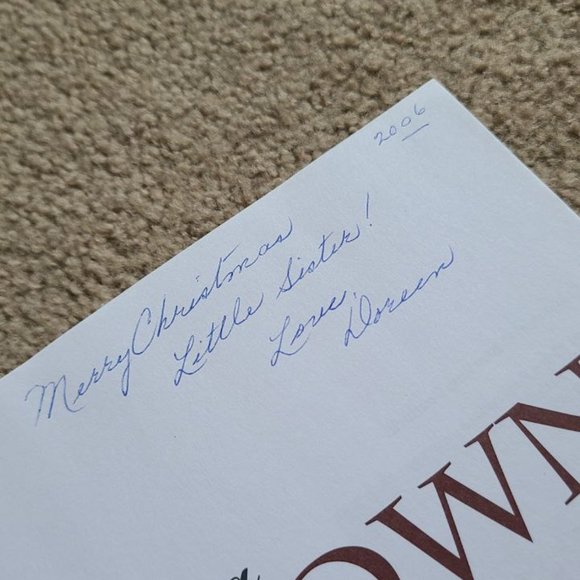 2006
Merry Christmas
Little Sister!
Love,
Doreen
OWN
a